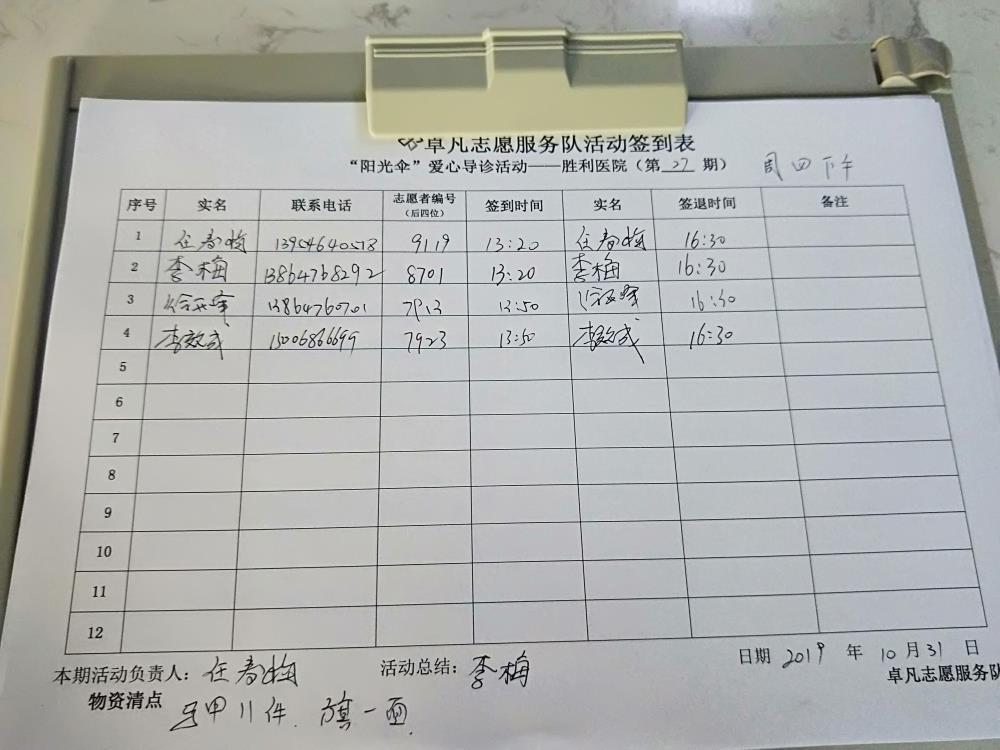 卓凡志愿服务队活动签到表
“阳光伞”爱心导诊活动——胜利医院（第27期） 周四下午
序号 实名 联系电话 志愿者编号（后四位） 签到时间 实名 签退时间 备注
1 任春梅 13954640518 9119 13:20 任春梅 16:30
2 李梅 13864768292 8701 13:20 李梅 16:30
3 13864760701 7913 13:50 16:30
4 李效成 15006866699 7923 13:50 李效成 16:30
5
6
7
8
9
10
11
12
本期活动负责人：任春梅 活动总结：李梅 日期 2019 年 10 月 31 日
物资清点 马甲11件. 旗一面. 卓凡志愿服务队